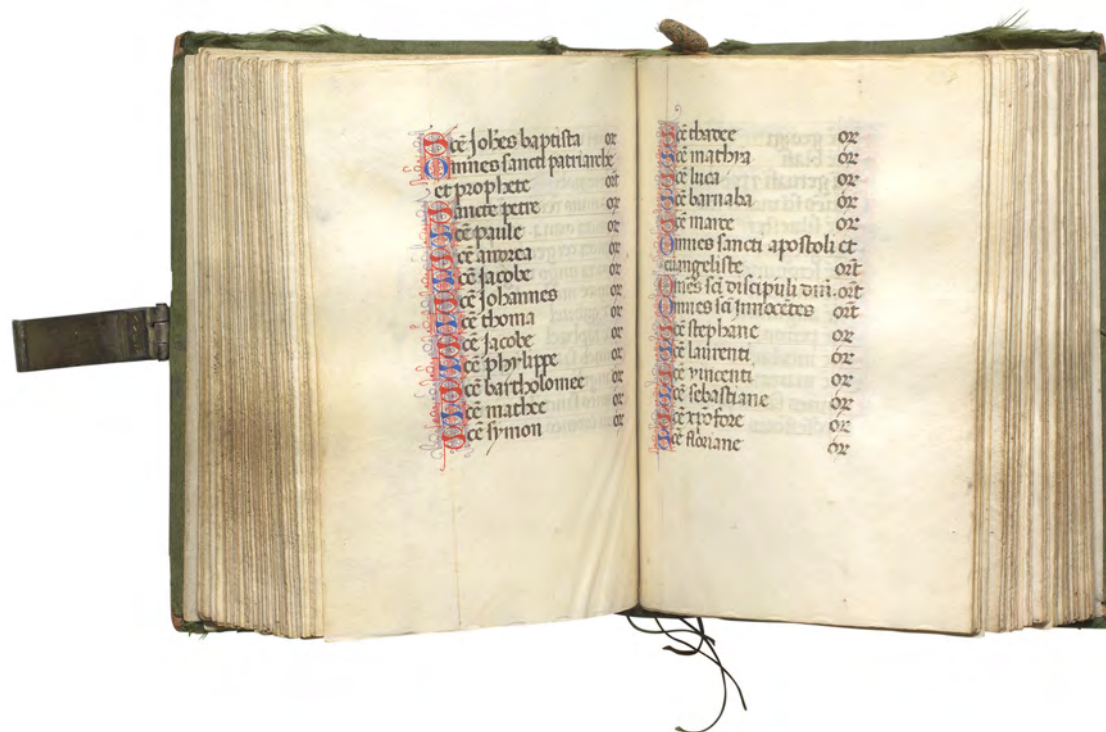 Scē Joh̄es baptista or
Omnes sancti patriarche
et prophete ort̄
Sancte petre or
Scē paule or
Scē andrea or
Scē Jacobe or
Scē Johannes or
Scē thoma or
Scē Jacobe or
Scē phylippe or
Scē bartholomee or
Scē mathee or
Scē symon or
Scē thadee or
Scē mathia or
Scē luca or
Scē barnaba or
Scē marce or
Omnes sancti apostoli et
euangeliste ort̄
Omēs sc̄i discipuli dn̄i. ort̄
Omnes sc̄i Jnnocētes ort̄
Scē stephane or
Scē laurenti or
Scē vincenti or
Scē sebastiane or
Scē xp̄ofore or
Scē floriane or